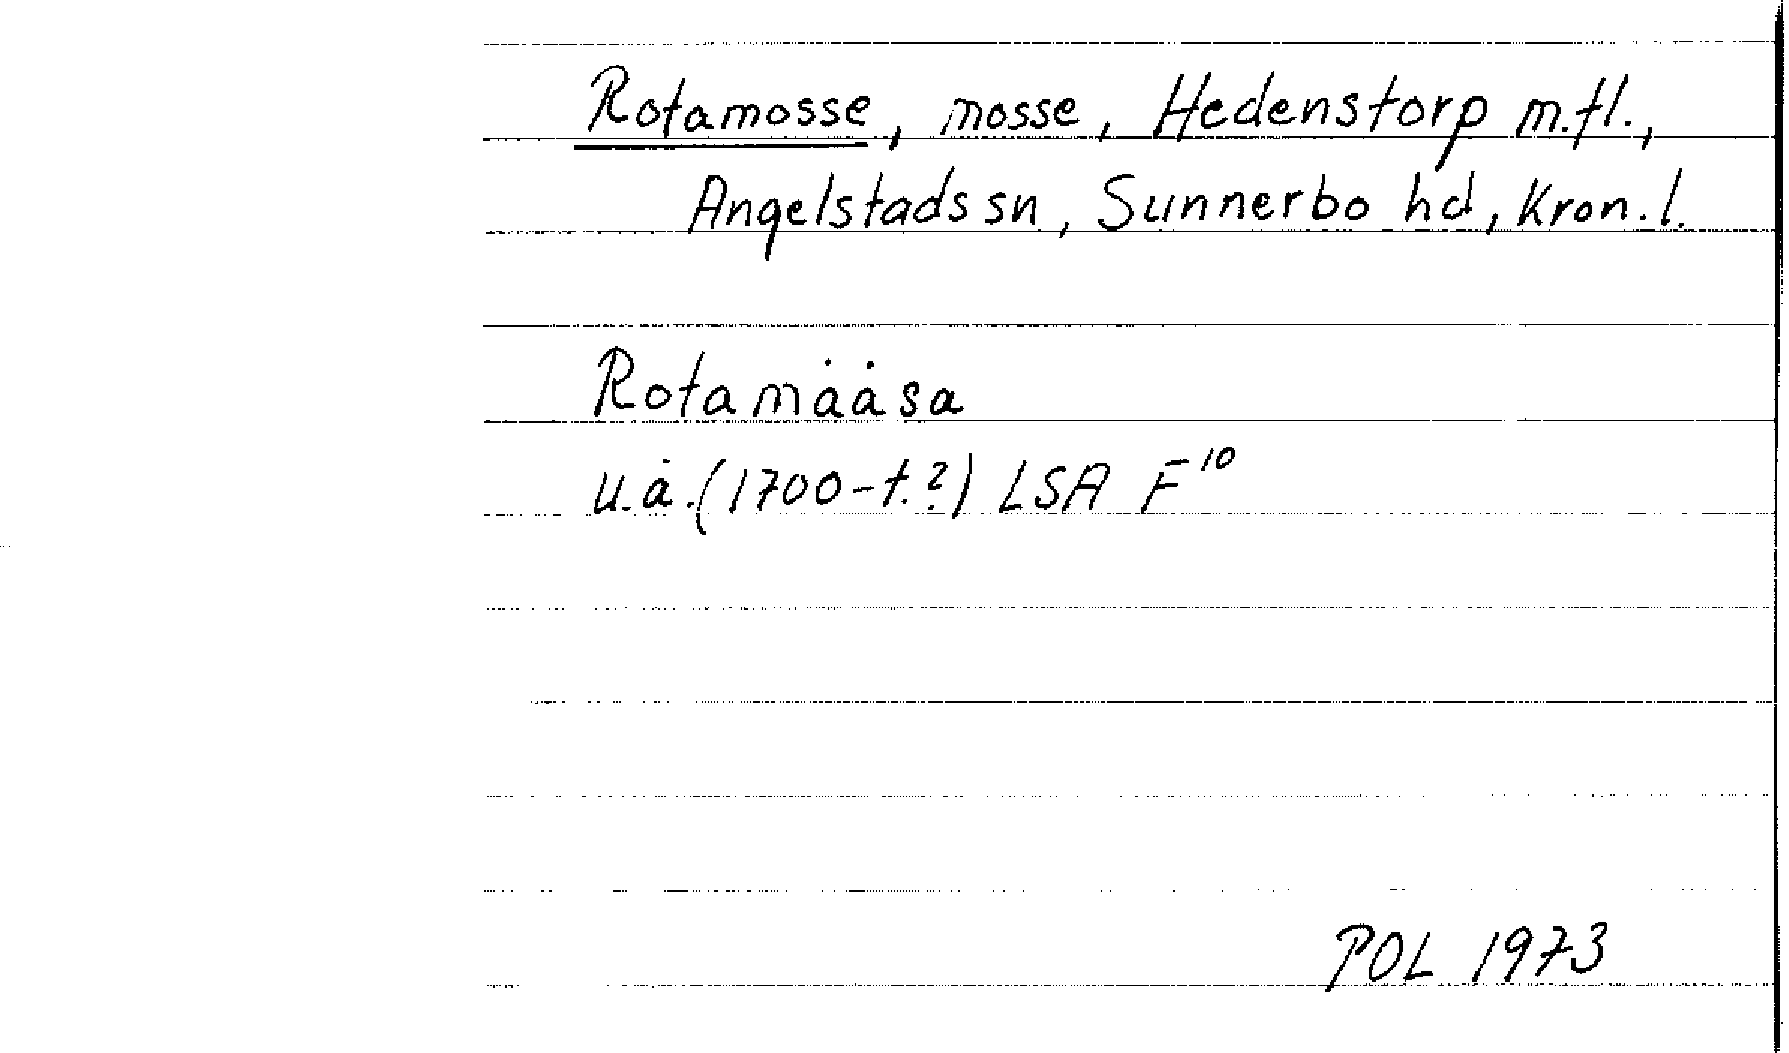 Rotamosse, mosse, Hedenstorp m.fl.,
Angelstads sn, Sunnerbo hd, Kron.l.
Rotamååsa
u.å.(1700-t.?) LSA F¹⁰
POL 1973